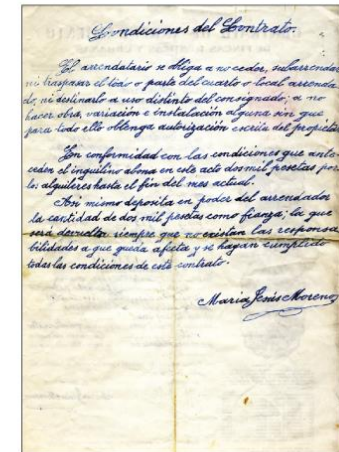 Condiciones del Contrato.
El arrendatario se obliga a no ceder, subarrendar
ni traspasar el todo o parte del cuarto o local arrenda
do, ni destinarlo a uso distinto del consignado; a no
hacer obra, variación e instalación alguna sin que
para todo ello obtenga autorización escrita del propieta
En conformidad con las condiciones que ante
ceden el inquilino abona en este acto dos mil pesetas por
los alquileres hasta el fin del mes actual.
Asi mismo deposita en poder del arrendador
la cantidad de dos mil pesetas como fianza; la que
será devuelta siempre que no existan las responsa
bilidades a que queda afecta y se hayan cumplido
todas las condiciones de este contrato.
Maria Jesús Moreno